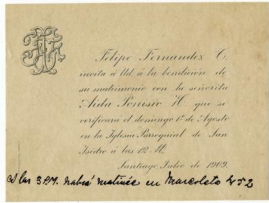 Felipe Fernandez C.
invita á Ud. á la bendición de
su matrimonio con la señorita
Aida H. que se
verificará el domingo 1º de Agosto
en la Iglesia Parroquial de San
Isidro á las 12 M.
Santiago Julio de 1909.
A las 3 P.M. habrá matinée en 252